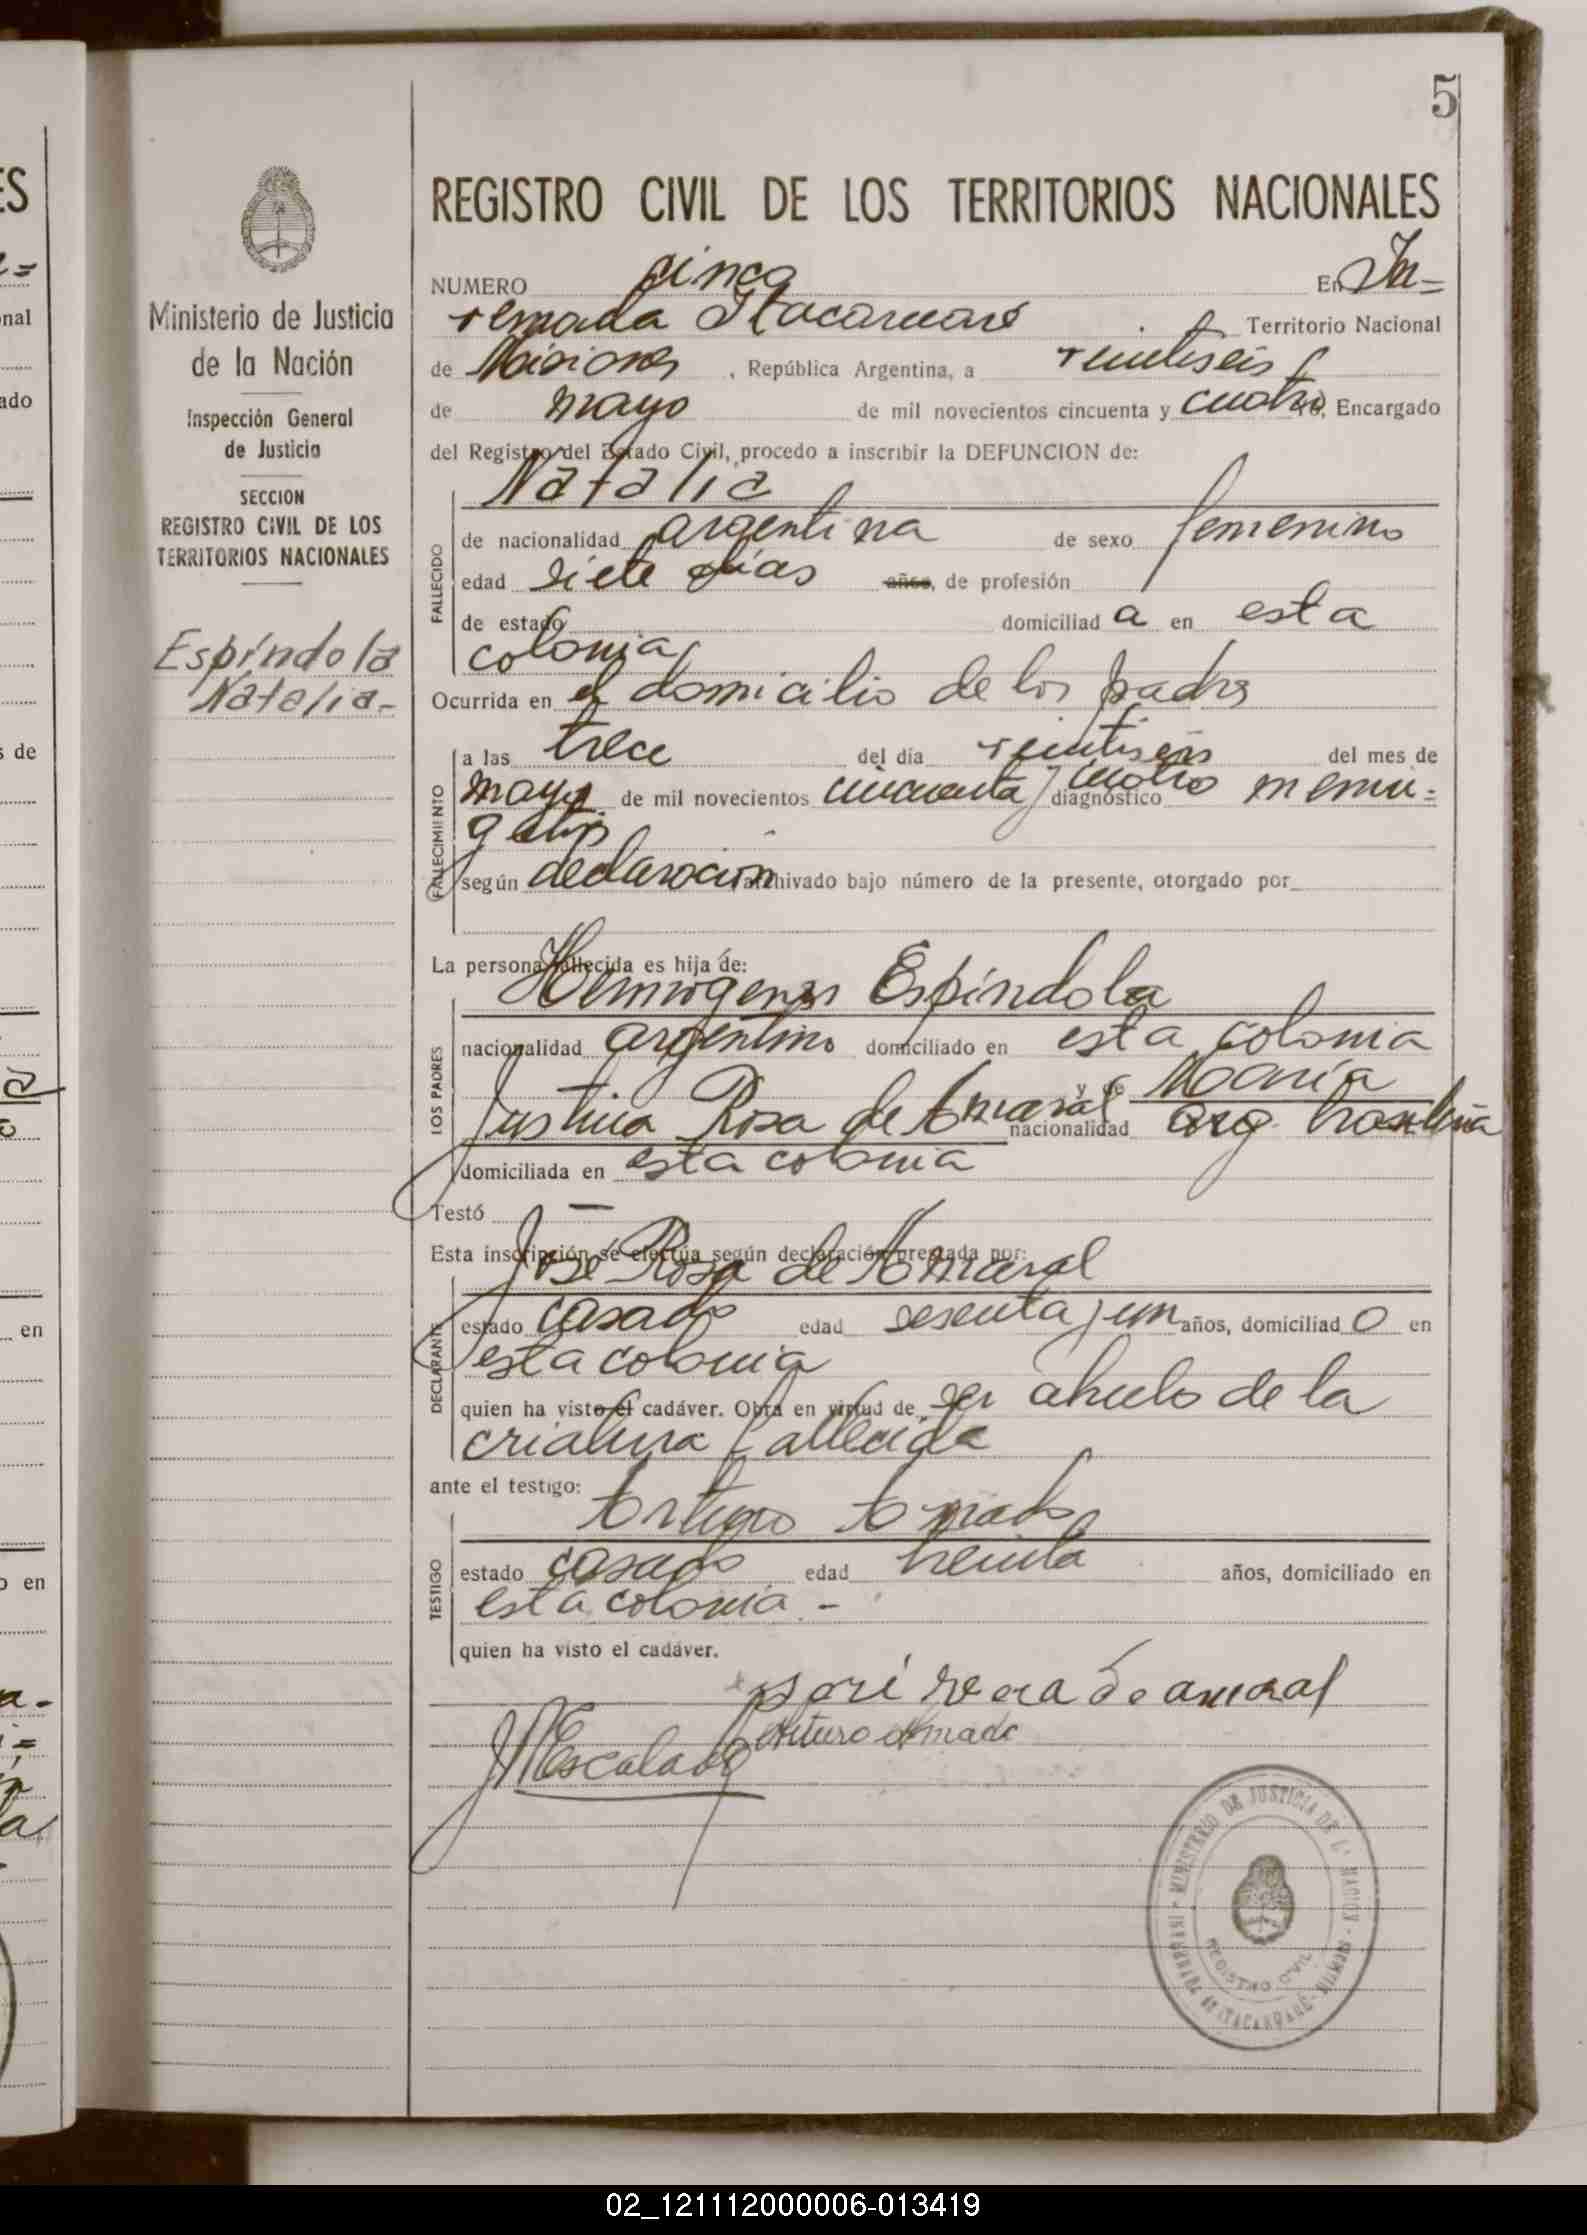 5
REGISTRO CIVIL DE LOS TERRITORIOS NACIONALES
Ministerio de Justicia
de la Nación
Inspección General
de Justicia
SECCION
REGISTRO CIVIL DE LOS
TERRITORIOS NACIONALES
Espíndola
Natalia-
NUMERO cinco En In=
vernada Itacaruaré Territorio Nacional
de Misiones, República Argentina, a veintiseis
de mayo de mil novecientos cincuenta y cuatro yo, Encargado
del Registro del Estado Civil, procedo a inscribir la DEFUNCION de:
Natalia
FALLECIDO
de nacionalidad argentina de sexo femenino
edad siete días años, de profesión
de estado domiciliad a en esta
colonia
Ocurrida en el domicilio de los padres
FALLECIMIENTO
a las trece del día veintiseis del mes de
mayo de mil novecientos cincuenta y cuatro diagnóstico menin=
gitis
según declaración archivado bajo número de la presente, otorgado por
La persona fallecida es hija de:
Hermógenes Espíndola
LOS PADRES
nacionalidad argentino domiciliado en esta colonia
y de María
Justina Rosa de Amaral nacionalidad arg. brasileña
domiciliada en esta colonia
Testó —
Esta inscripción se efectúa según declaración prestada por:
José Rosa de Amaral
DECLARANTE
estado casado edad sesenta y un años, domiciliad o en
esta colonia
quien ha visto el cadáver. Obra en virtud de ser abuelo de la
criatura fallecida
ante el testigo:
Arturo Amado
TESTIGO
estado casado edad treinta años, domiciliado en
esta colonia.-
quien ha visto el cadáver.
José de amaral
Arturo Amado
Escalada
MINISTERIO DE JUSTICIA DE LA NACION
REGISTRO CIVIL
02_121112000006-013419